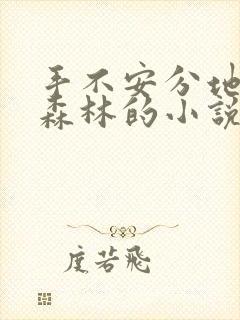 手不安分地
森林的小说
度若飞